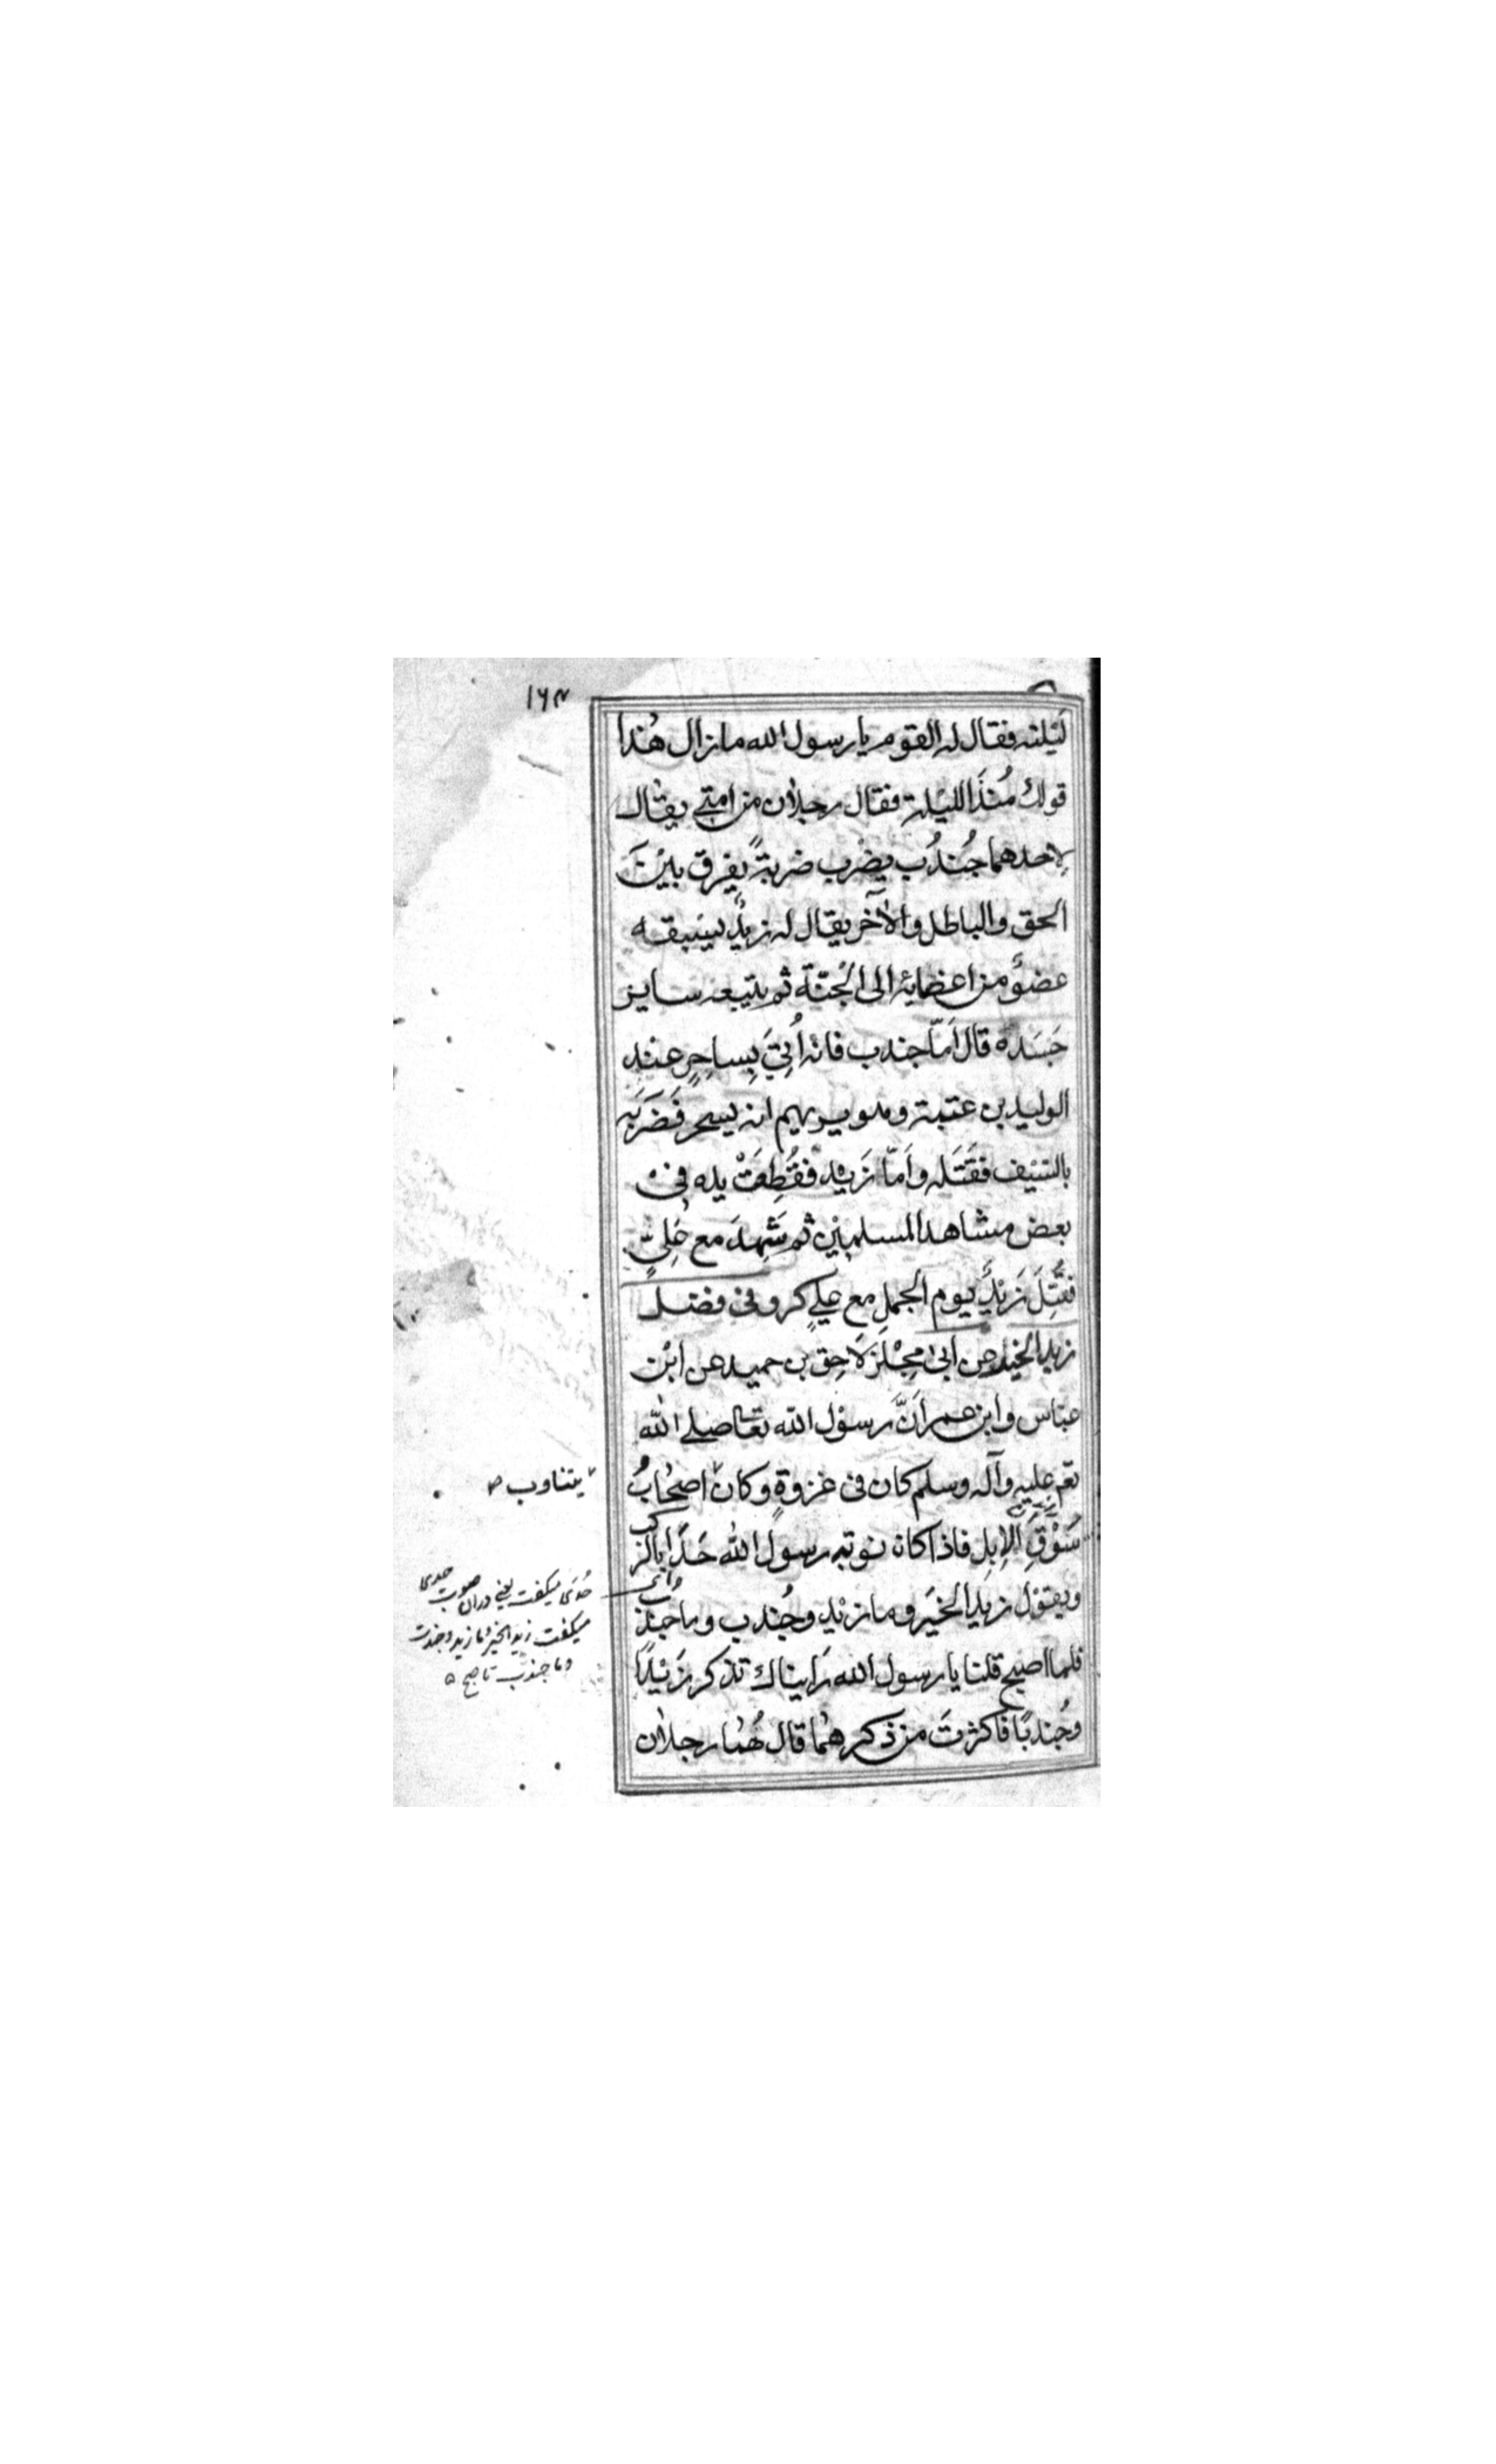 ١٦٣
لَيلته فقال له القوم يا رسول الله ما زال هٰذا
قولك مُنذَ الليلة فقال رجلان من امتي يقال
لاحدهما جُندُب يضرب ضربةً يفرق بيْنَ
الحق والباطل والآخر يقال له زيدٌ يسبقه
عضوٌ من اعضائه الى الجنّة ثم يتبعه ساير
جَسَده قال اَمّا جندب فانه اُتِيَ بِساحِرٍ عند
الوليد بن عتبة وهو يريهم انه يسحر فَضَرَبَه
بالسّيْف فقَتَله واَمّا زَيْد فقُطِعَتْ يده فى
بعض مشاهد المسلمين ثم شَهِدَ مع عَلِيٍّ
فقُتِلَ زَيْدٌ يوم الجمل مع علي كرو فى فضل
زيد الخير عن ابى مِجْلَز لاحِق بن حميد عن ابن
عباس وابن عمر اَنَّ رسوْل الله تعا صلى الله
تع عليه وآله وسلم كان فى غزوةٍ وكان اصحٰابُ
سَوْقَ الاِبِلِ فاذا كان نوتبه رسول الله حَدَا بالركب
ويقوْل زيد الخيَر وما زيْد وجُندب وما جندب
فلما اصبح قلنا يا رسول الله رَايناك تذكر زَيْدًا
وجُندبًا فاكثرتَ من ذكرهما قال هُما رجلان
يتناوب
حُدَى ميكفت يعنى دران صوت حدى
ميكفت زيد الخير وما زيد وجندب
وما جندب تا صبح